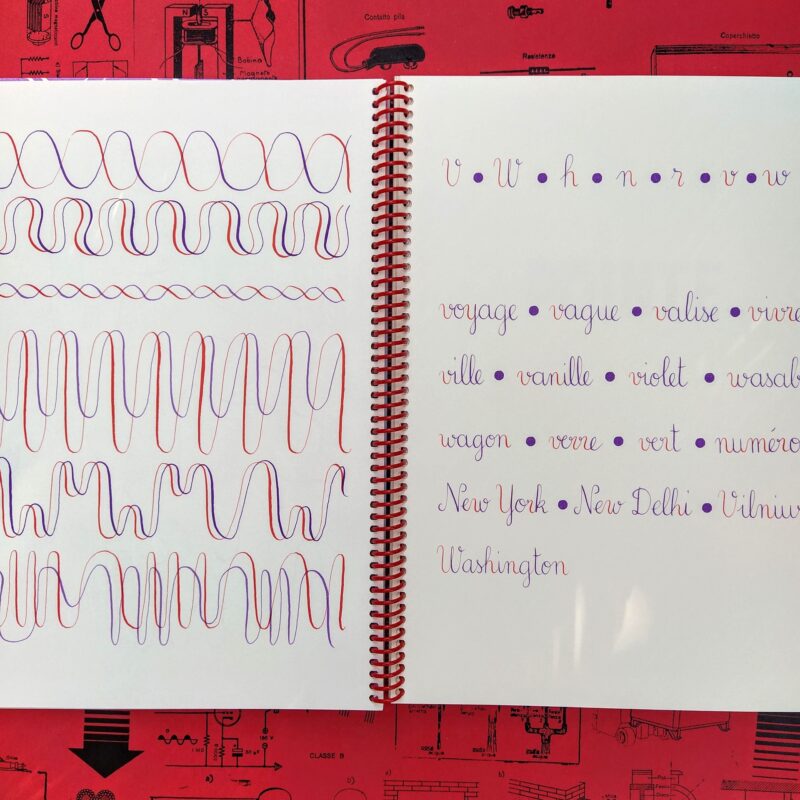 N S
Contatto pila
Coperchietto
Resistenza
Bobina
Magnete
V • W • h • n • r • v • w
voyage • vague • valise • vivre
ville • vanille • violet • wasab
wagon • verre • vert • numéro
New York • New Delhi • Vilnius
Washington
CLASSE B
a) b) b)